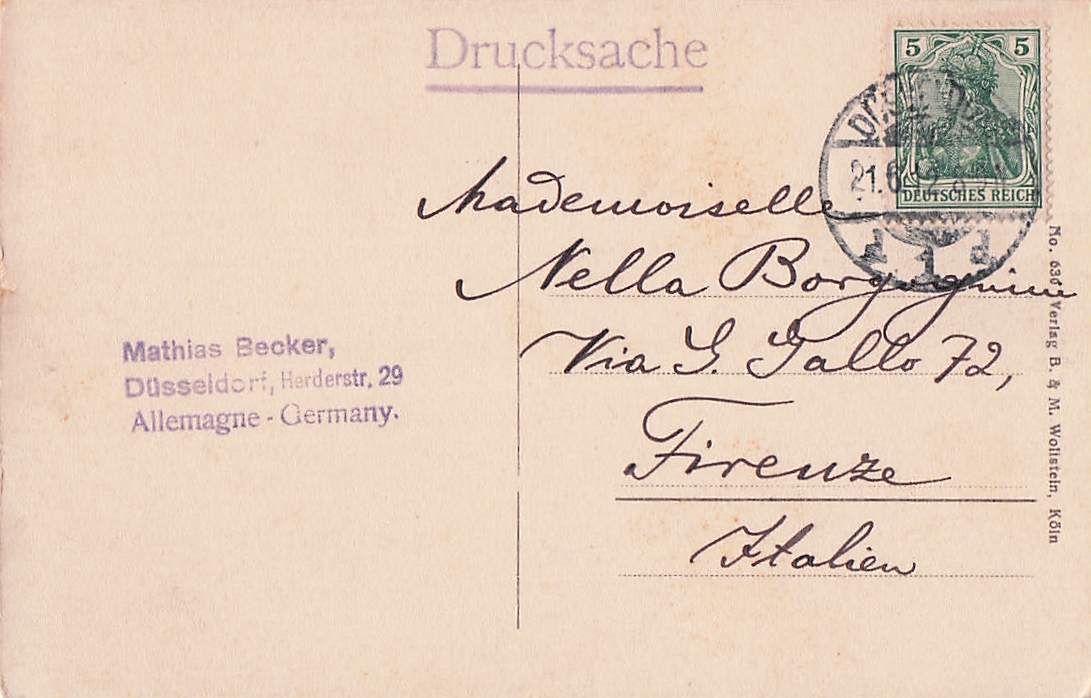 Drucksache
5 5
DEUTSCHES REICH
21.6.
1
Mademoiselle
Nella
Via G. Gallo 72,
Firenze
Italien
Mathias Becker,
Düsseldorf, Herderstr. 29
Allemagne - Germany.
No. 630 Verlag B. & M. Wollstein, Köln